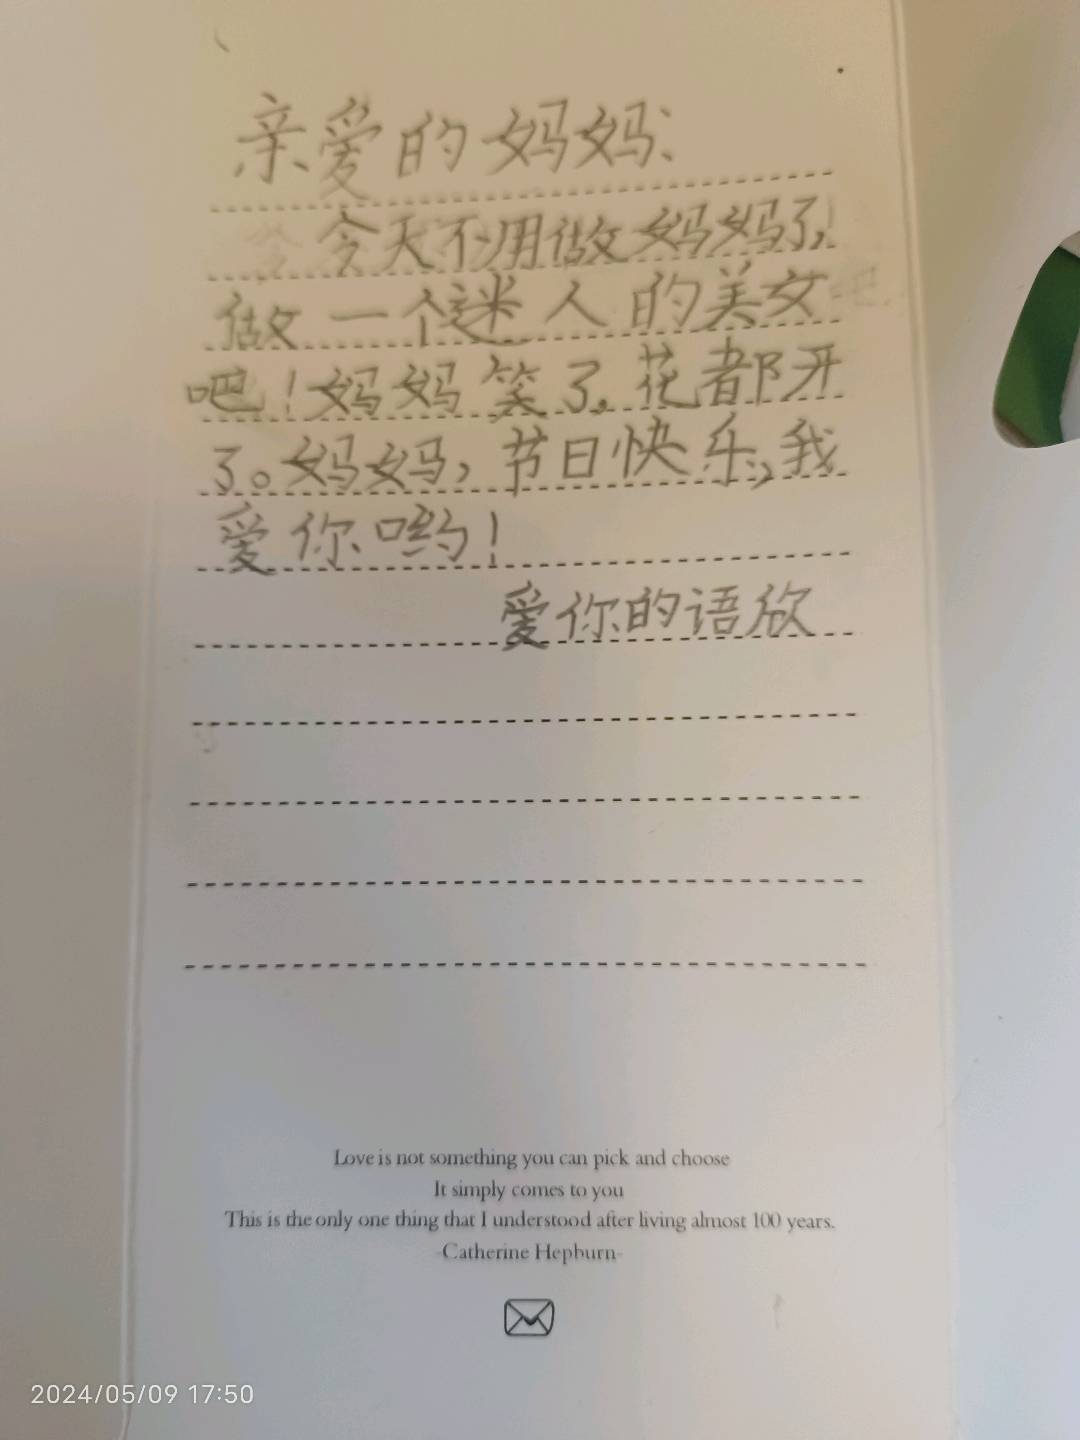 亲爱的妈妈:
今天不用做妈妈了,
做一个迷人的美女
吧!妈妈笑了,花都开
了。妈妈,节日快乐,我
爱你哟!
爱你的语欣
Love is not something you can pick and choose
It simply comes to you
This is the only one thing that I understood after living almost 100 years.
-Catherine Hepburn-
2024/05/09 17:50